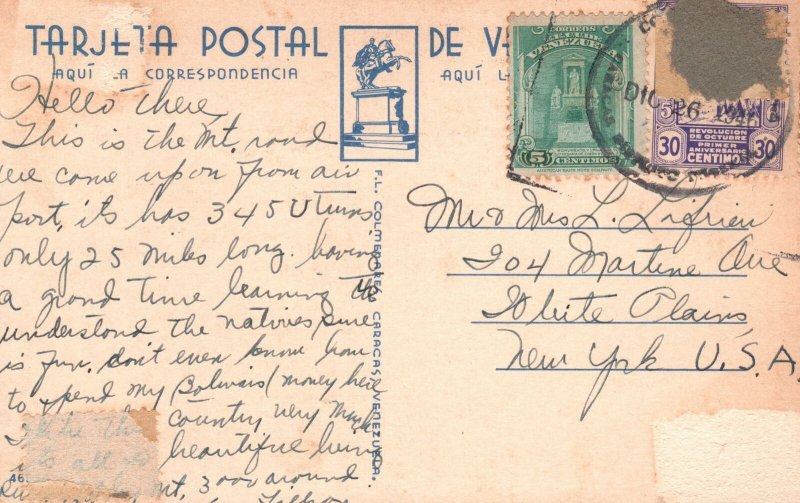 TARJETA POSTAL DE V
AQUÍ LA CORRESPONDENCIA AQUÍ L
Hello there,
This is the Mt. road
we come upon from air
port, its has 345 U turns
only 25 miles long. having
a grand time learning to
understand the natives, sure
is fun. don't even know how
to spend my Bolivais (money here
country very much
beautiful
Mt, 3000 around
46.
F.L. COLMENARES, CARACAS, VENEZUELA.
CORREOS
VENEZUELA
5 CENTIMOS
AMERICAN BANK NOTE COMPANY
DIC 26
REVOLUCION
DE OCTUBRE
PRIMER
ANIVERSARIO
30 CENTIMOS 30
Mr & Mrs L.
204 Martine Ave
White Plains,
New York U.S.A.